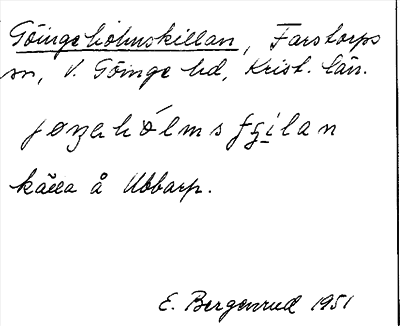 Göingeholmskillan, Farstorps
sn, V. Göinge hd, Krist. län.
källa å Ubbarp.
E. Bergenrud 1951